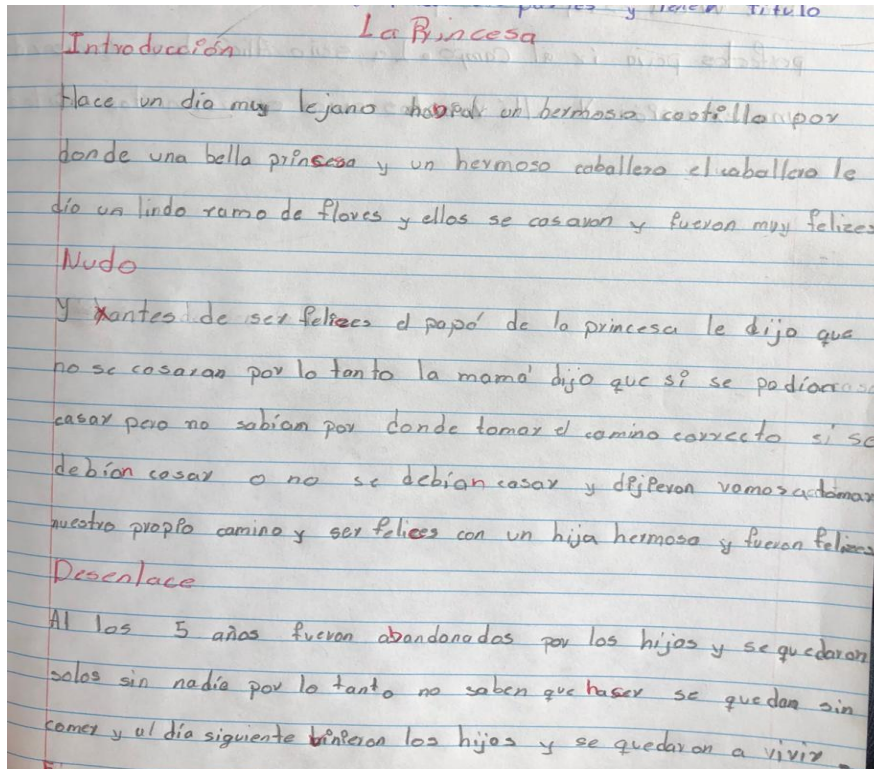 y tienen Titulo
La Princesa
Introducción
Hace un dia muy lejano habian un hermoso castillo por
donde una bella prinsesa y un hermoso caballero el caballero le
dio un lindo ramo de flores y ellos se casaron y fueron muy felizes
Nudo
y antes de ser felizes el papá de la princesa le dijo que
no se casaran por lo tanto la mamá dijo que si se podian
casar pero no sabian por donde tomar el camino correcto si se
debian casar o no se debian casar y dijieron vamos a tomar
nuestro propio camino y ser felices con un hija hermosa y fueron felizes
Desenlace
Al los 5 años fueron abandonados por los hijos y se quedaron
solos sin nadie por lo tanto no saben que haser se quedan sin
comer y al día siguiente vinieron los hijos y se quedaron a vivir.